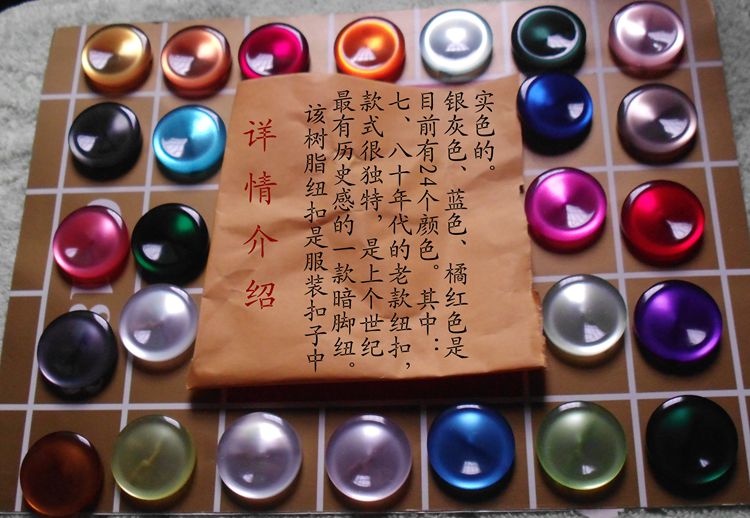 详情介绍
该树脂纽扣是服装扣子中
最有历史感的一款暗脚纽。
款式很独特，是上个世纪
七、八十年代的老款纽扣，
目前有24个颜色。其中：
银灰色、蓝色、橘红色是
实色的。